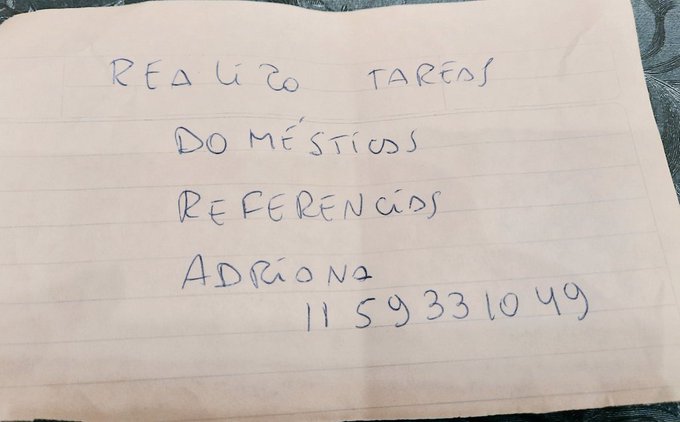 REALIZO TAREAS
DOMÉSTICAS
REFERENCIAS
ADRIANA
11 59331049